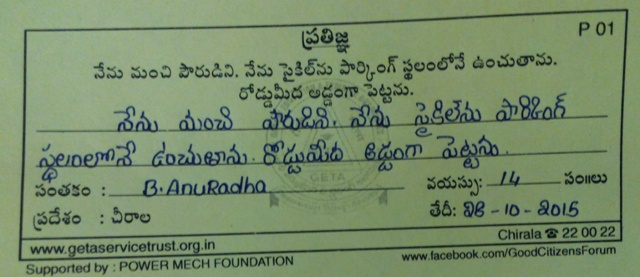 ప్రతిజ్ఞ
P 01
నేను మంచి పౌరుడిని. నేను సైకిల్‌ను పార్కింగ్ స్థలంలోనే ఉంచుతాను.
రోడ్డుమీద అడ్డంగా పెట్టను.
నేను మంచి పౌరుడిని. నేను సైకిలేను పారికింగ్
స్థలంలోనే ఉంచుతాను. రోడ్డుమీద అడ్డంగా పెట్టను.
సంతకం : B. AnuRadha వయస్సు: 14 సం॥లు
ప్రదేశం : చీరాల తేదీ: 28-10-2015
www.getaservicetrust.org.in Chirala ☎ 22 00 22
Supported by : POWER MECH FOUNDATION www.facebook.com/GoodCitizensForum
GETA